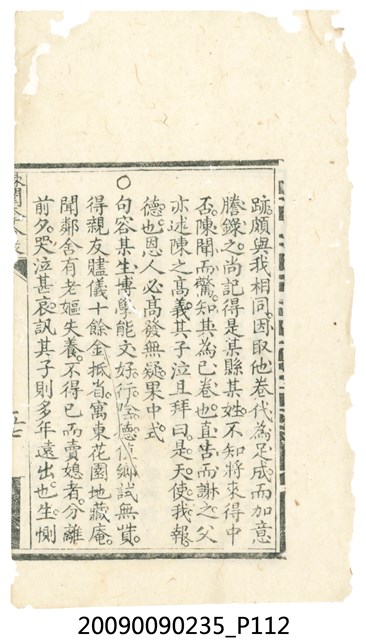 跡頗與我相同因取他卷代為足成而加意
謄錄之尚記得是某縣某姓不知將來得中
否陳聞而驚知其為已卷也直告而謝之父
亦述陳之高義其子泣且拜曰是天使我報
德也恩人必高發無疑果中式
○句容某生博學能文好行陰德
鄉試無
得親友贐儀十餘金抵省寓東花園地藏庵
聞鄰舍有老嫗失養不得已而賣媳者分離
前夕哭泣甚哀訊其子則多年遠出也生惻
20090090235_P112